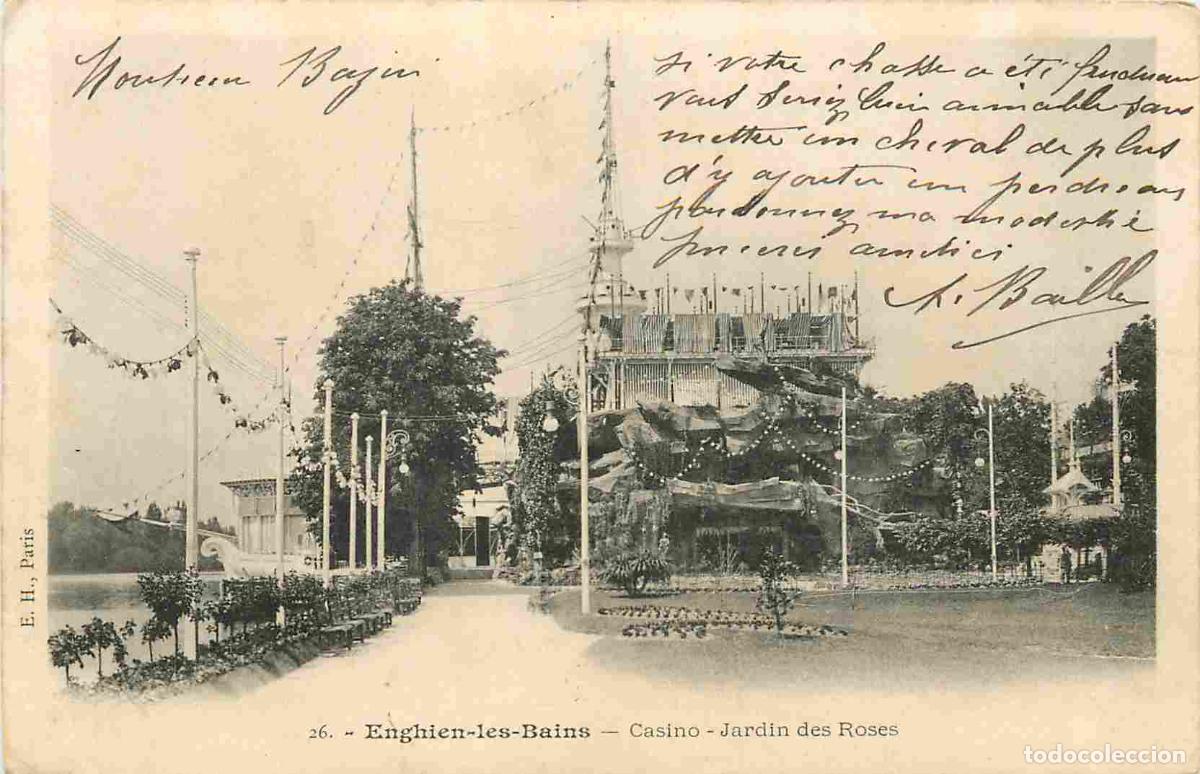 Monsieur Bazin
si votre chasse a été fructueuse
vous seriez bien aimable sans
mettre un cheval de plus
d'y ajouter un perdreau
pardonnez ma modestie
amitiés
A. Bailly
E. H., Paris
26. - Enghien-les-Bains — Casino - Jardin des Roses
todocoleccion